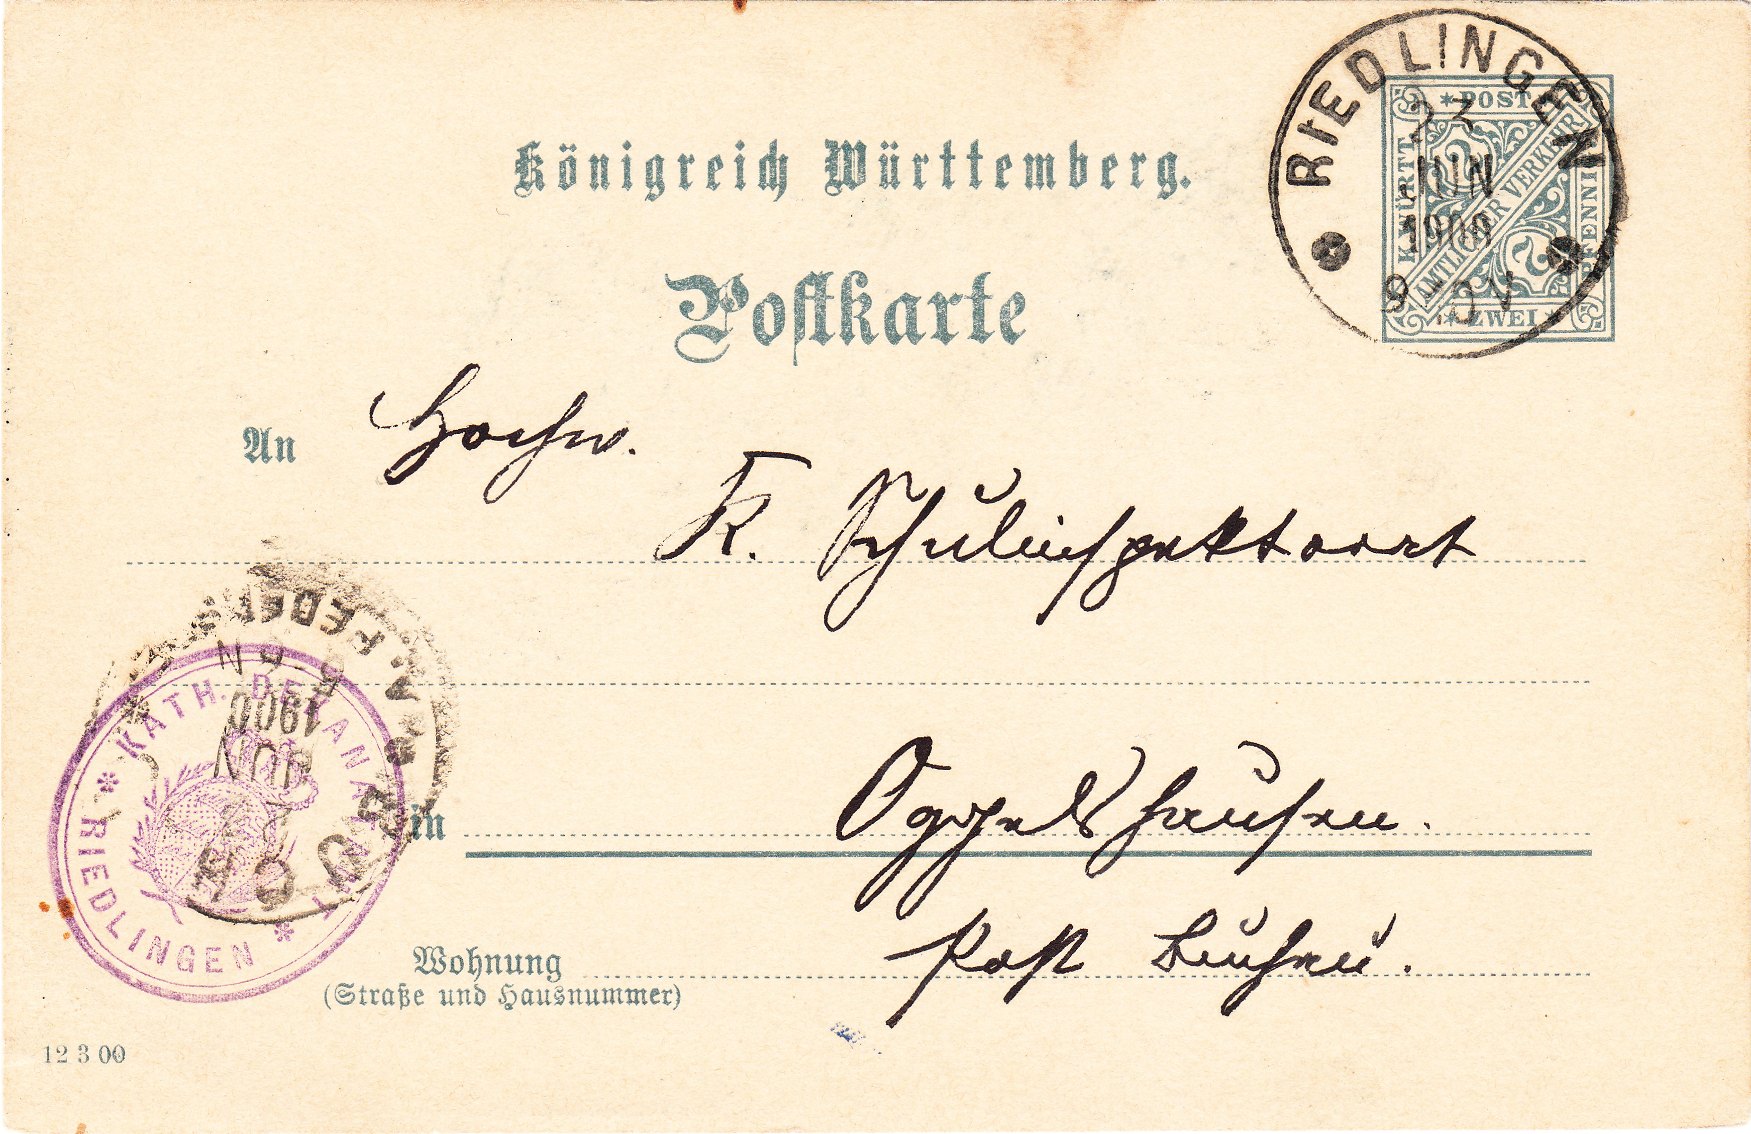 Königreich Württemberg.
Postkarte
RIEDLINGEN
23
JUN
1900
9
POST
K. WÜRTT.
AMTLICHER VERKEHR
PFENNIG
ZWEI
2
An Hochw.
K. Schulinspektorat
KATH. DEKANAT
RIEDLINGEN
A. FEDERS
JUN
1900
in Oggelshausen.
Post Buchau.
Wohnung
(Straße und Hausnummer)
12 3 00